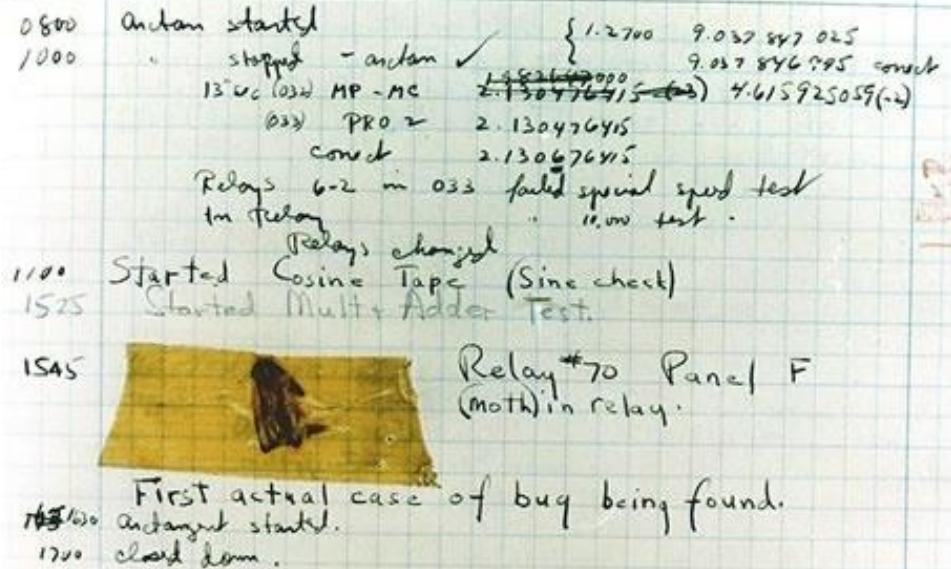 0800 antan started { 1.2700 9.037 847 025
1000 " stopped - antan ✓ 9.037 846 995 correct
13" uc (032) MP - MC 1.982647000 2.130476415 (-3) 4.615925059(-2)
(033) PRO 2 2.130476415
correct 2.130676415
Relays 6-2 in 033 failed special speed test
In Relay " 10,000 test .
Relays changed
1100 Started Cosine Tape (Sine check)
1525 Started Mult + Adder Test.
1545 Relay #70 Panel F
(moth) in relay.
First actual case of bug being found.
1630 antangent started.
1700 closed down.